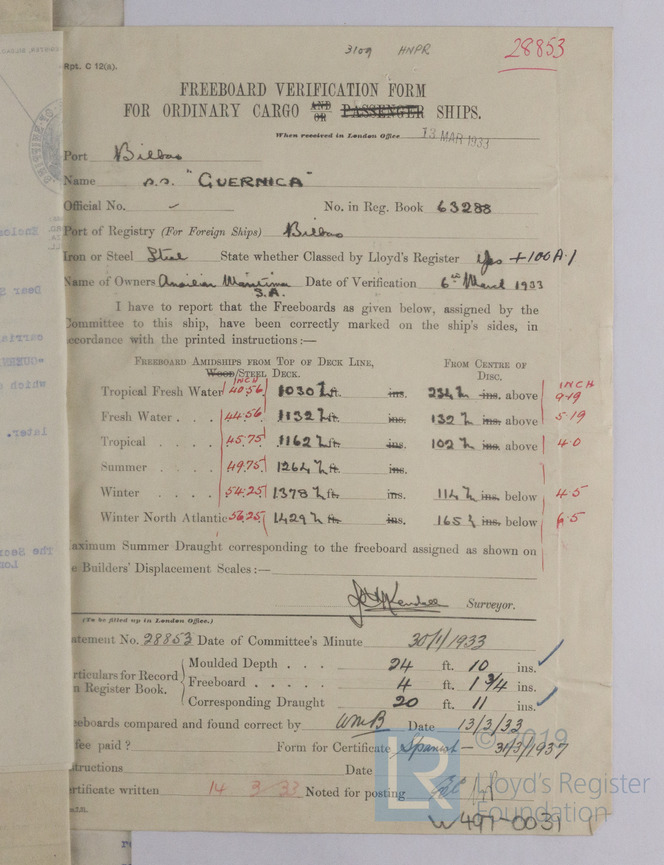 3109 HNPR 28853
Rpt. C 12(a).
FREEBOARD VERIFICATION FORM
FOR ORDINARY CARGO AND OR PASSENGER SHIPS.
When received in London Office 13 MAR 1933
Port Bilbao
Name s.s. "GUERNICA"
Official No. - No. in Reg. Book 63288
Port of Registry (For Foreign Ships) Bilbao
Iron or Steel Steel State whether Classed by Lloyd's Register Yes +100A.1
Name of Owners Maritima S.A. Date of Verification 6th March 1933
I have to report that the Freeboards as given below, assigned by the
Committee to this ship, have been correctly marked on the ship's sides, in
ccordance with the printed instructions:—
FREEBOARD AMIDSHIPS FROM TOP OF DECK LINE, FROM CENTRE OF
Wood/STEEL DECK. DISC.
INCH INCH
Tropical Fresh Water 40.56 1030 ft. ins. 234 ins. above 9.19
Fresh Water . . . 44.56 1132 ft. ins. 132 ins. above 5.19
Tropical . . . . 45.75 1162 ft. ins. 102 ins. above 4.0
Summer . . . . 49.75 1264 ft. ins.
Winter . . . . 54.25 1378 ft. ins. 114 ins. below 4.5
Winter North Atlantic 56.25 1429 ft. ins. 165 ins. below 6.5
aximum Summer Draught corresponding to the freeboard assigned as shown on
e Builders' Displacement Scales:—
Kendall Surveyor.
(To be filled up in London Office.)
atement No. 28853 Date of Committee's Minute 30/1/1933
rticulars for Record
n Register Book.
Moulded Depth . . . 24 ft. 10 ins.
Freeboard . . . . . 4 ft. 1 3/4 ins.
Corresponding Draught 20 ft. 11 ins.
eeboards compared and found correct by WMB Date 13/3/33
fee paid ? Form for Certificate Spanish - 31/3/1937
structions Date
rtificate written 14 3/33 Noted for posting
W497-0031
© 2019
LR Lloyd's Register
Foundation
Enclos
Dear S
carri
"GUERN
which
later.
The Secre
Lon